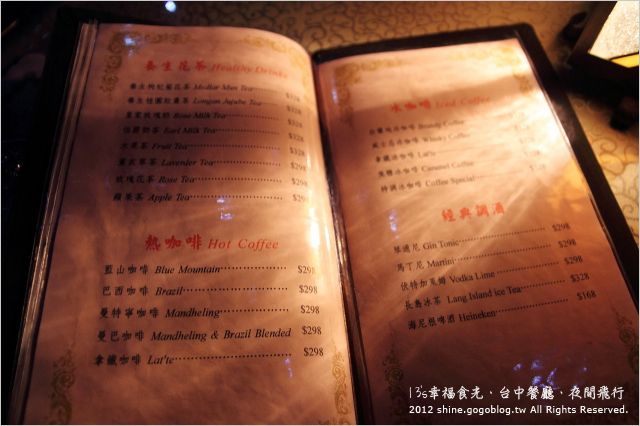 養生花茶 Healthy Drinks
養生枸杞菊花茶 Medlar Mun Tea $328
養生桂圓紅棗茶 Longan Jujube Tea $328
皇家玫瑰奶 Rose Milk Tea $328
伯爵奶茶 Earl Milk Tea $328
水果茶 Fruit Tea $328
薰衣草茶 Lavender Tea $298
玫瑰花茶 Rose Tea $298
蘋果茶 Apple Tea $298
熱咖啡 Hot Coffee
藍山咖啡 Blue Mountain $298
巴西咖啡 Brazil $298
曼特寧咖啡 Mandheling $298
曼巴咖啡 Mandheling & Brazil Blended $298
拿鐵咖啡 Lat'te $298
冰咖啡 Iced Coffee
白蘭地冰咖啡 Brandy Coffee
威士忌冰咖啡 Whisky Coffee
拿鐵冰咖啡 Lat'te
焦糖冰咖啡 Caramel Coffee
特調冰咖啡 Coffee Special
經典調酒
琴通尼 Gin Tonic $298
馬丁尼 Martini $298
伏特加萊姆 Vodka Lime $298
長島冰茶 Lang Island ice Tea $328
海尼根啤酒 Heineken $168
13's幸福食光、台中餐廳、夜間飛行
2012 shine.gogoblog.tw All Rights Reserved.